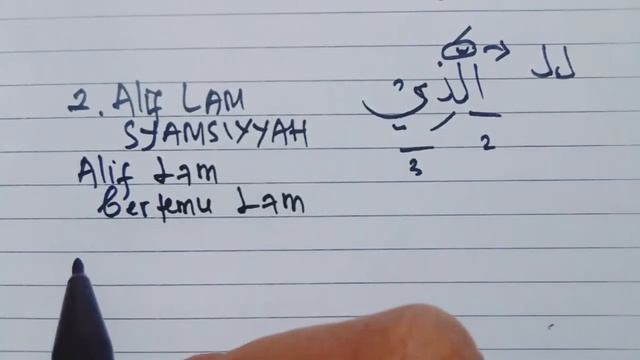 2. Alif LAM
SYAMSIYYAH
Alif Lam
Bertemu Lam
الذي
لل
3 2